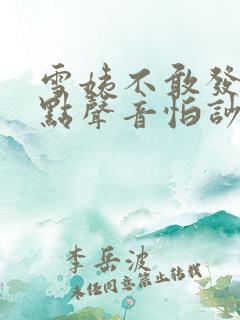 雪姨不敢發
點聲音怕訪
李岳波
未经同意禁止转载